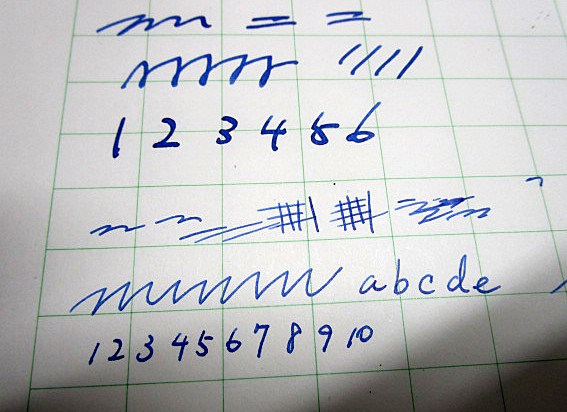 1 2 3 4 5 6
abcde
1 2 3 4 5 6 7 8 9 10